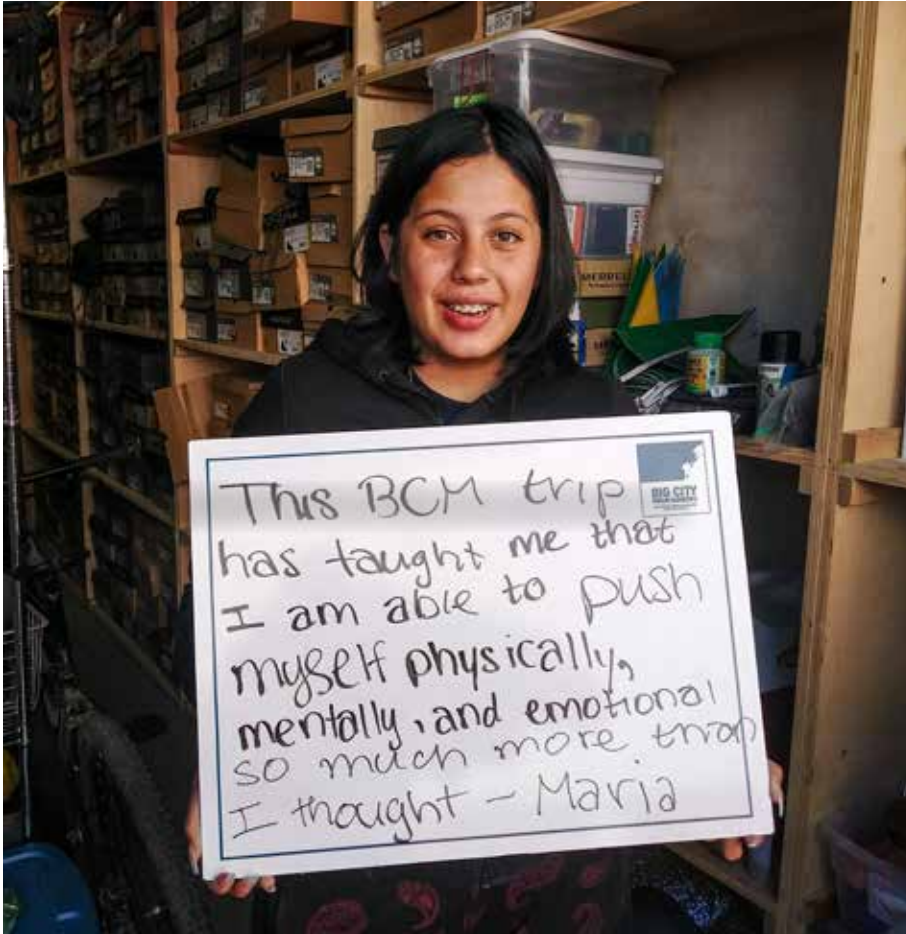 This BCM trip
BIG CITY
has taught me that
I am able to push
myself physically,
mentally, and emotional
so much more than
I thought - Maria
MERRELL